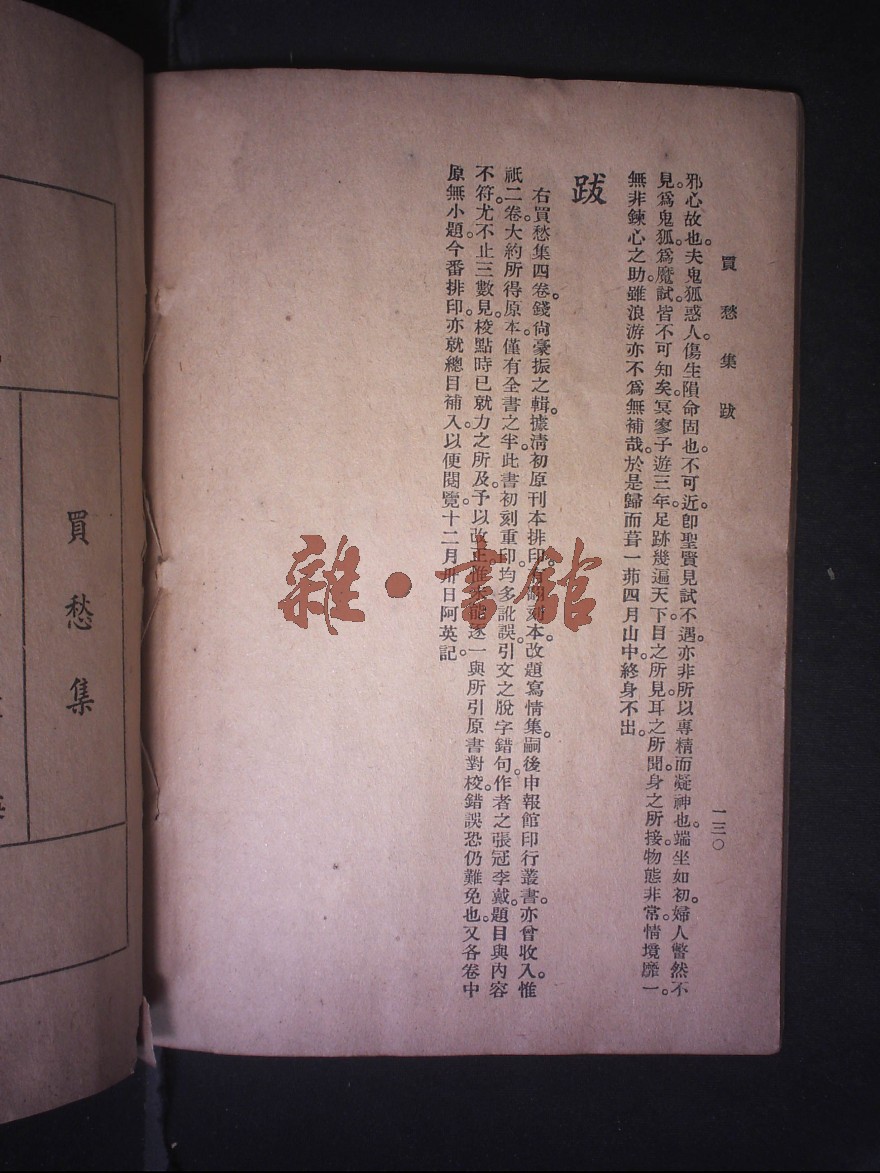 買愁集跋
一三〇
邪心故也。夫鬼狐惑人。傷生隕命固也。不可近。卽聖賢見試不遇。亦非所以專精而凝神也。端坐如初。婦人瞥然不
見。爲鬼狐。爲魔試。皆不可知矣。冥寥子遊三年。足跡幾遍天下。目之所見。耳之所聞。身之所接。物態非常。情境靡一。
無非鍊心之助。雖浪游亦不爲無補哉。於是歸而葺一茆四月山中。終身不出。
跋
右買愁集四卷。錢尙豪振之輯。據淸初原刊本排印。有刻本。改題寫情集。嗣後申報館印行叢書。亦曾收入。惟
祇二卷。大約所得原本。僅有全書之半。此書初刻重印。均多訛誤。引文之脫字錯句。作者之張冠李戴。題目與內容
不符。尤不止三數見。校點時已就力之所及。予以改正。惟逐一與所引原書對校。錯誤恐仍難免也。又各卷中
原無小題。今番排印。亦就總目補入。以便閱覽。十二月卅日阿英記。
雜·書館
買愁集